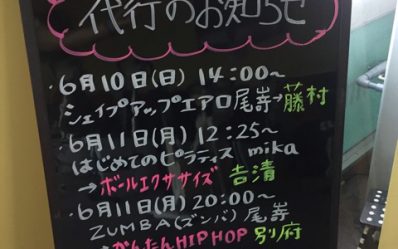 代行のお知らせ
・6月10日(日) 14:00~
シェイプアップエアロ尾嵜→藤村
・6月11日(月) 12:25~
はじめてのピラティス mika
→ボールエクササイズ 吉清
・6月11日(月) 20:00~
ZUMBA(ズンバ) 尾嵜
→かんたんHIPHOP 別府